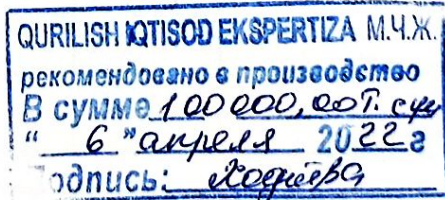 QURILISH IQTISOD EKSPERTIZA М.Ч.Ж.
рекомендовано в производство
В сумме 100 000,00 т. сум
"6" апреля 2022 г
Подпись: